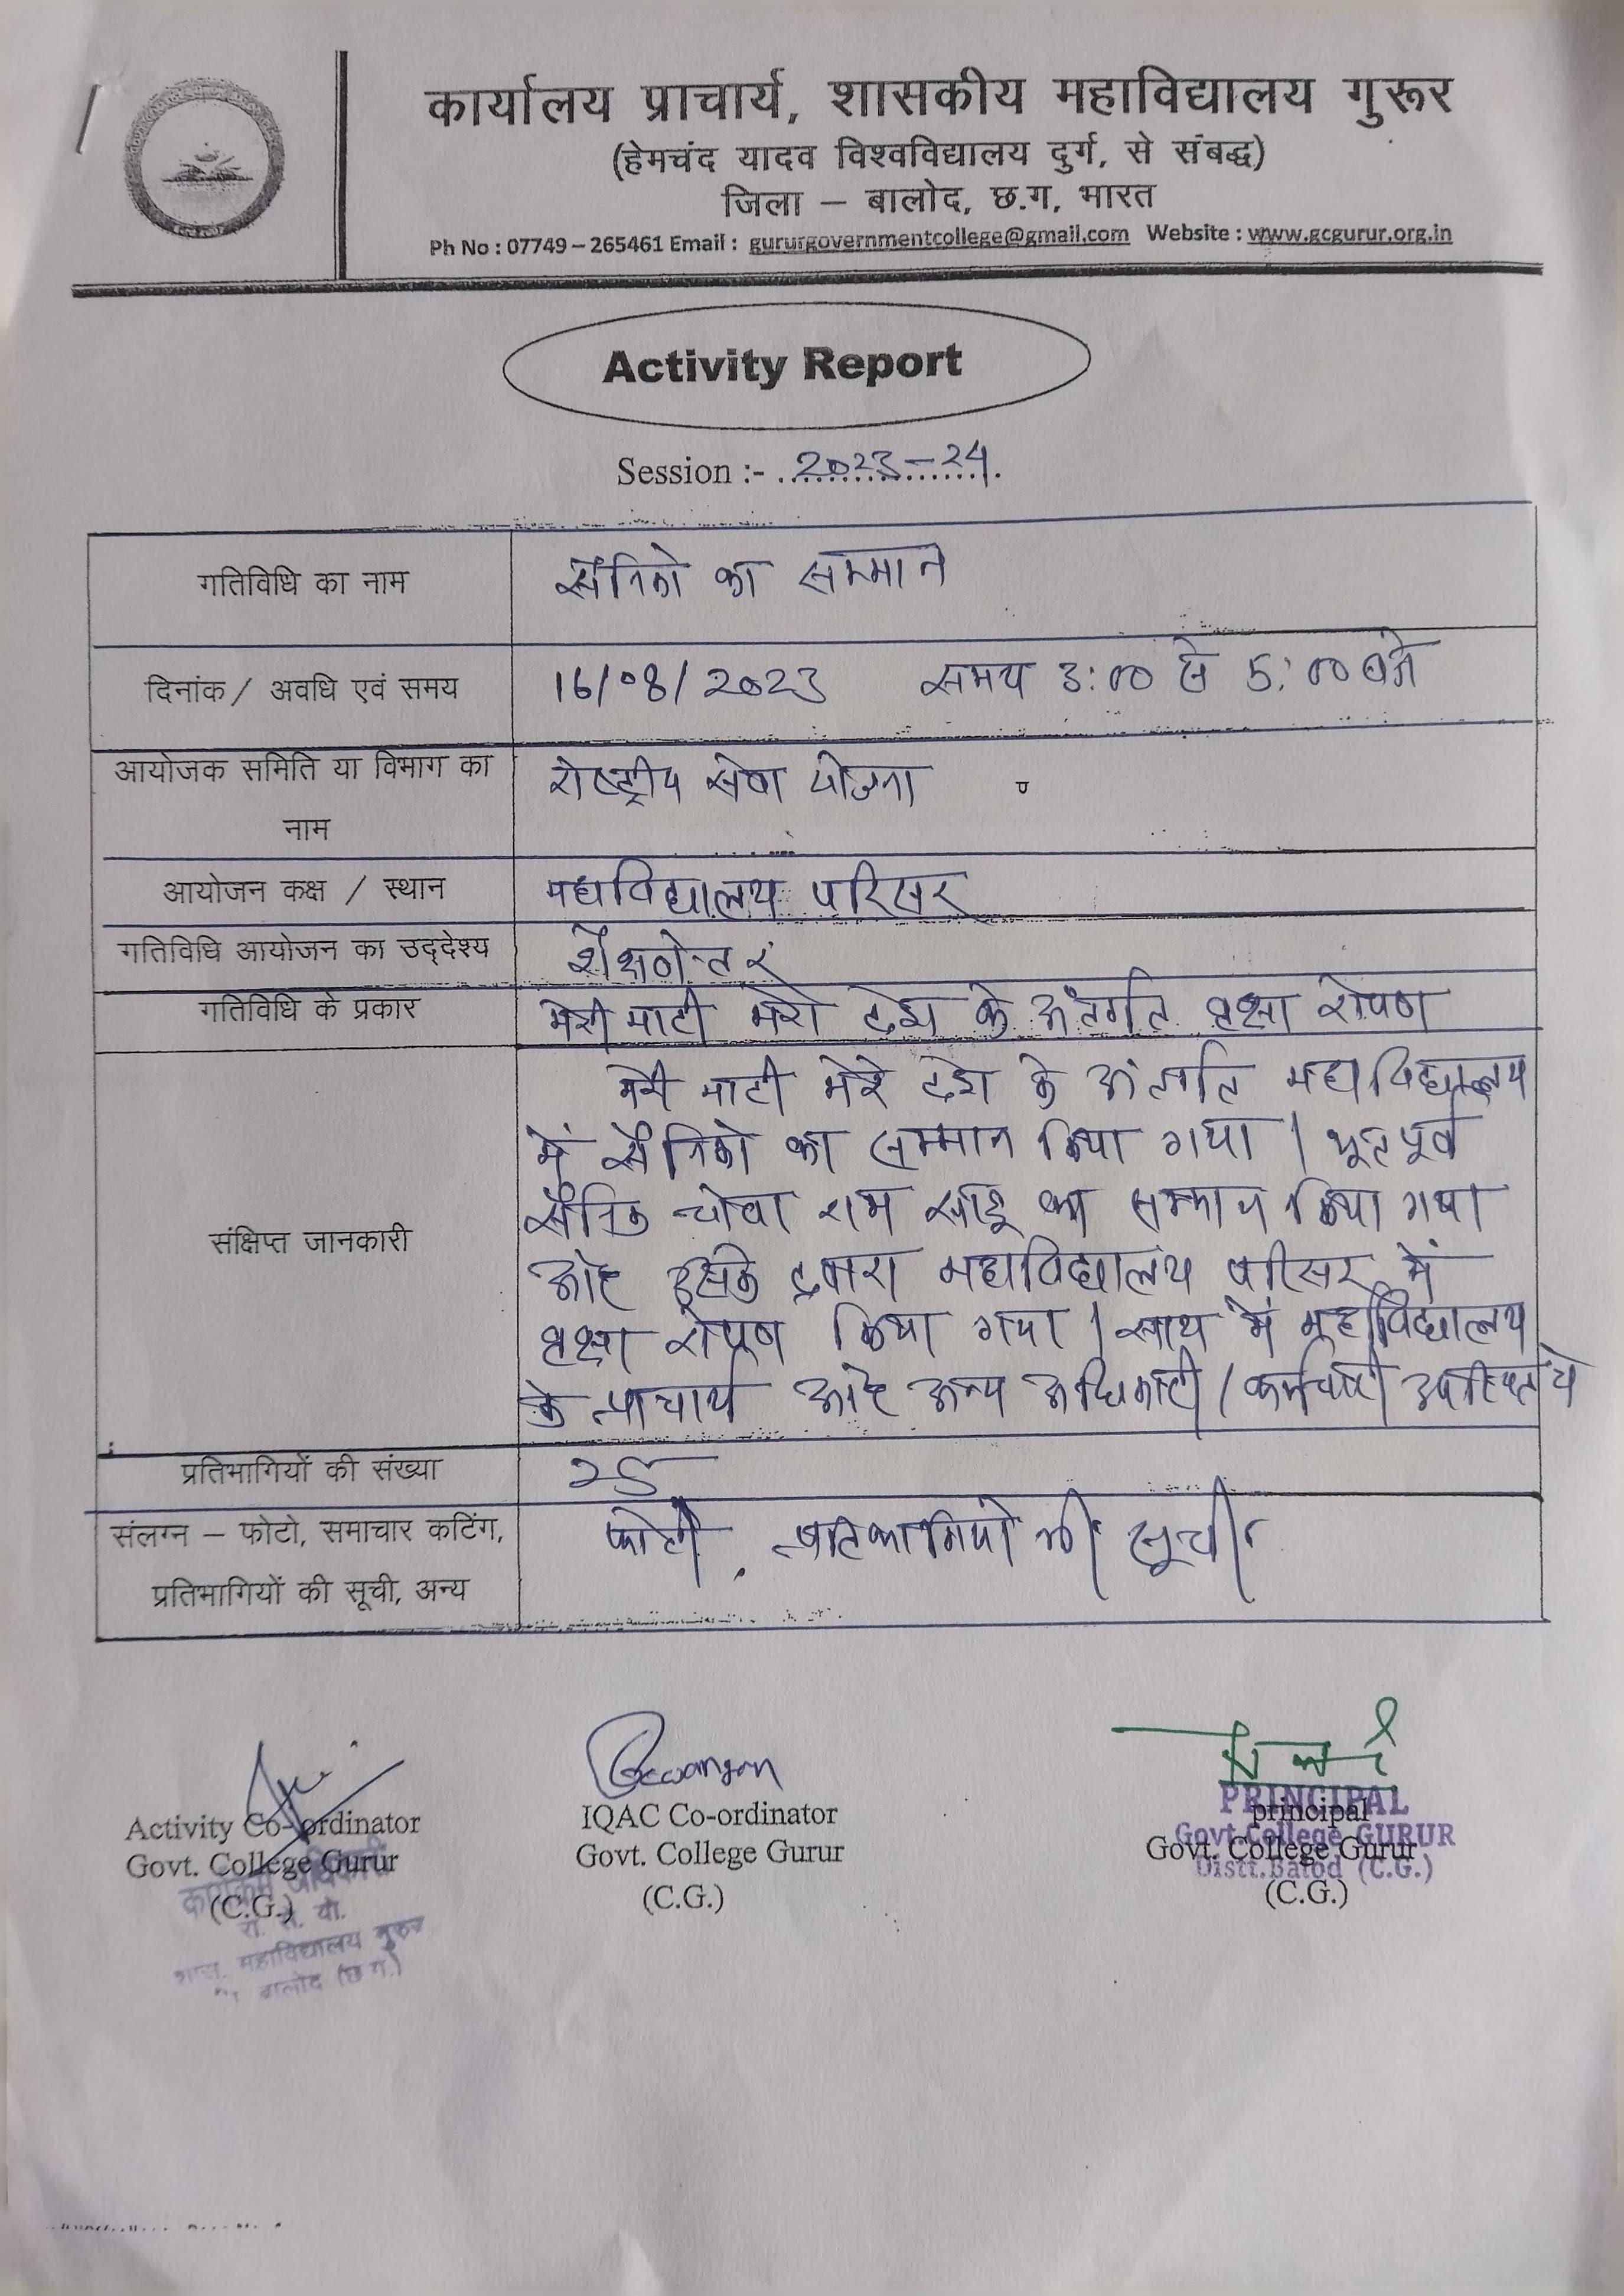 कार्यालय प्राचार्य, शासकीय महाविद्यालय गुरूर
(हेमचंद यादव विश्वविद्यालय दुर्ग, से संबद्ध)
जिला – बालोद, छ.ग, भारत
Ph No : 07749 – 265461 Email : gururgovernmentcollege@gmail.com Website : www.gcgurur.org.in
Activity Report
Session :- 2023-24.
गतिविधि का नाम
सैनिको का सम्मान
दिनांक / अवधि एवं समय
16/08/2023 समय 3:00 से 5:00 बजे
आयोजक समिति या विभाग का
नाम
राष्ट्रीय सेवा योजना
आयोजन कक्ष / स्थान
महाविद्यालय परिसर
गतिविधि आयोजन का उद्देश्य
शैक्षणेत्तर
गतिविधि के प्रकार
मेरी माटी मेरो देश के अंतर्गत वृक्षा रोपण
संक्षिप्त जानकारी
मेरी माटी मेरे देश के अंतर्गत महाविद्यालय
में सैनिको का सम्मान किया गया | भूतपूर्व
सैनिक चोवा राम साहू का सम्मान किया गया
और इसके द्वारा महाविद्यालय परिसर में
वृक्षा रोपण किया गया | साथ में महाविद्यालय
के प्राचार्य और अन्य अधिकारी / कर्मचारी उपस्थित थे
प्रतिभागियों की संख्या
25
संलग्न – फोटो, समाचार कटिंग,
प्रतिभागियों की सूची, अन्य
फोटो, प्रतिभागियो की सूची
Dewangan
Activity Co-ordinator
Govt. College Gurur
(C.G.)
कार्यक्रम अधिकारी
रा. से. यो.
शास. महाविद्यालय गुरुर
बालोद (छ.ग.)
IQAC Co-ordinator
Govt. College Gurur
(C.G.)
PRINCIPAL
Govt.College GURUR
Distt.Balod (C.G.)
principal
Govt. College Gurur
(C.G.)